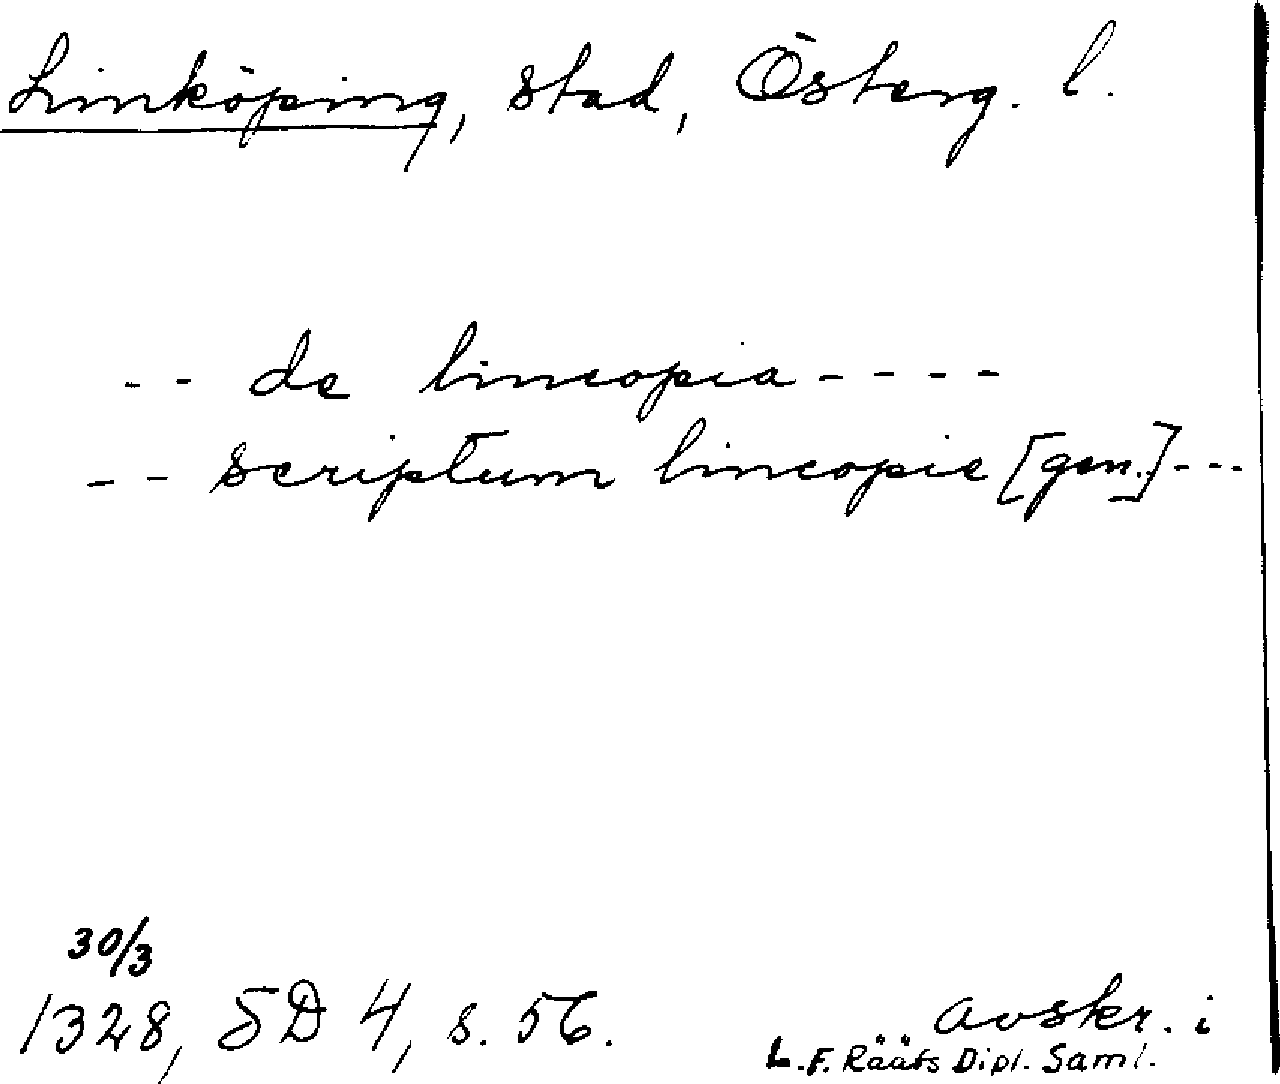 Linköping, stad, Österg. l.
-- de lincopia ----
-- scriptum lincopie [gen.] ---
30/3
1328, SD 4, s. 56.
avskr. i
L.F. Rääfs Dipl. Saml.